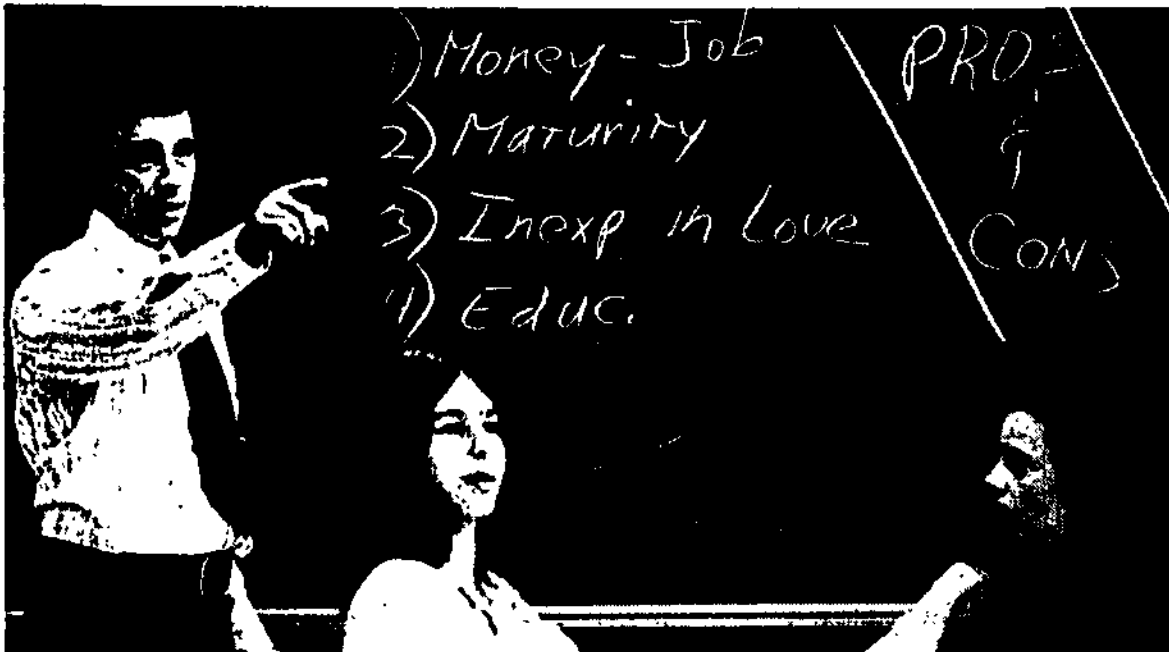 1) Money - Job
2) Maturity
3) Inexp. in Love
4) Educ.
PROS
&
CONS